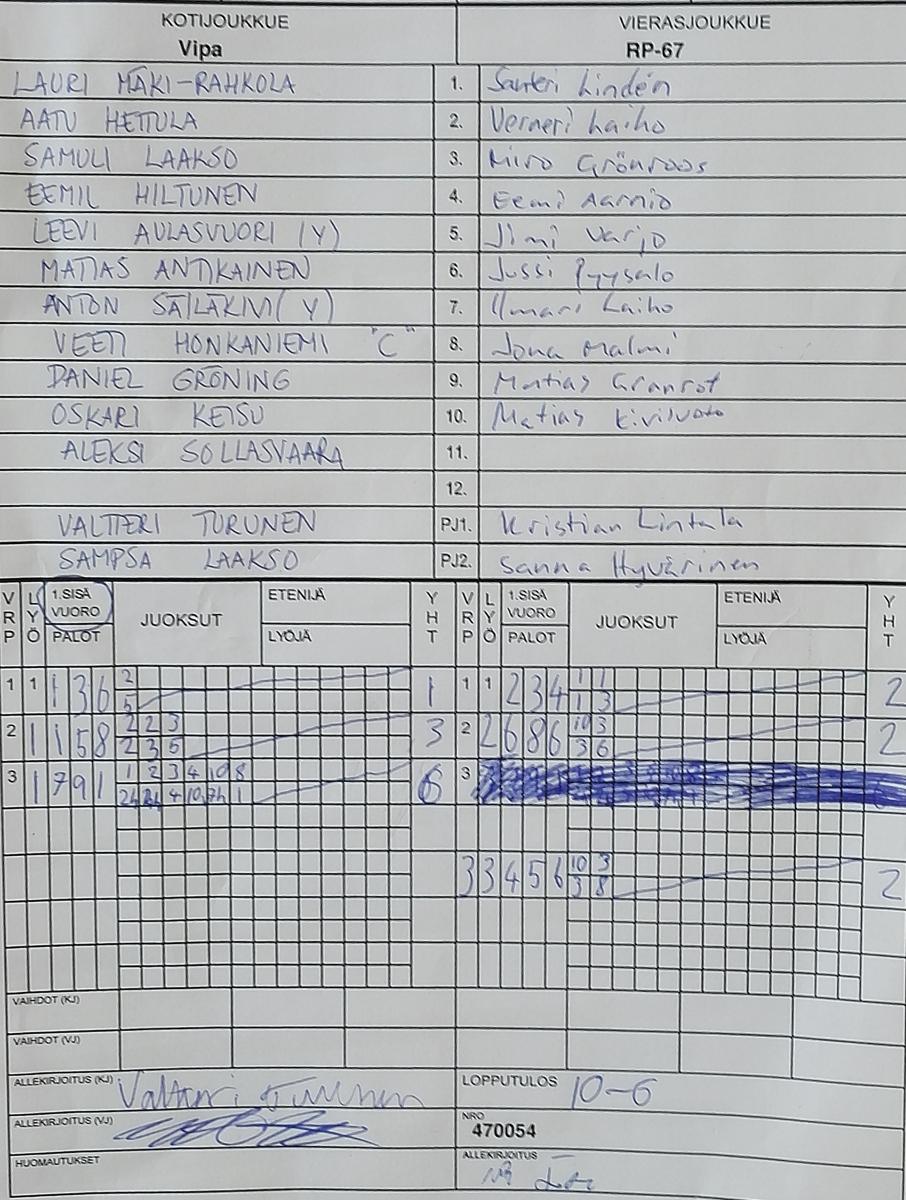 KOTIJOUKKUE VIERASJOUKKUE
Vipa RP-67
LAURI MÄKI-RAHKOLA 1. Santeri Lindén
AATU HETTULA 2. Verneri Laiho
SAMULI LAAKSO 3. Miro Grönroos
EEMIL HILTUNEN 4. Eemi Aarnio
LEEVI AULASVUORI (Y) 5. Jimi Varjo
MATIAS ANTIKAINEN 6. Jussi Pyysalo
ANTON SÄILÄKIVI (Y) 7. Ilmari Laiho
VEETI HONKANIEMI "C" 8. Jona Malmi
DANIEL GRÖNING 9. Matias Granrot
OSKARI KEISU 10. Matias Kiviluoto
ALEKSI SOLLASVAARA 11.
12.
VALTTERI TURUNEN PJ1. Kristian Lintala
SAMPSA LAAKSO PJ2. Sanna Hyvärinen
VRP LYÖ 1.SISÄ VUORO PALOT JUOKSUT ETENIJÄ LYÖJÄ YHT VRP LYÖ 1.SISÄ VUORO PALOT JUOKSUT ETENIJÄ LYÖJÄ YHT
1 1 1 3 6 2 1 1 1 2 3 4 1 1 2
5 1 3
2 1 1 5 8 2 2 3 3 2 2 6 8 6 10 3 2
2 3 5 3 6
3 1 7 9 1 1 2 3 4 10 8 6 3
4 10 1
3 3 4 5 6 10 3 2
3 8
VAIHDOT (KJ)
VAIHDOT (VJ)
ALLEKIRJOITUS (KJ) Valtteri Turunen LOPPUTULOS 10-6
ALLEKIRJOITUS (VJ) NRO
470054
HUOMAUTUKSET ALLEKIRJOITUS